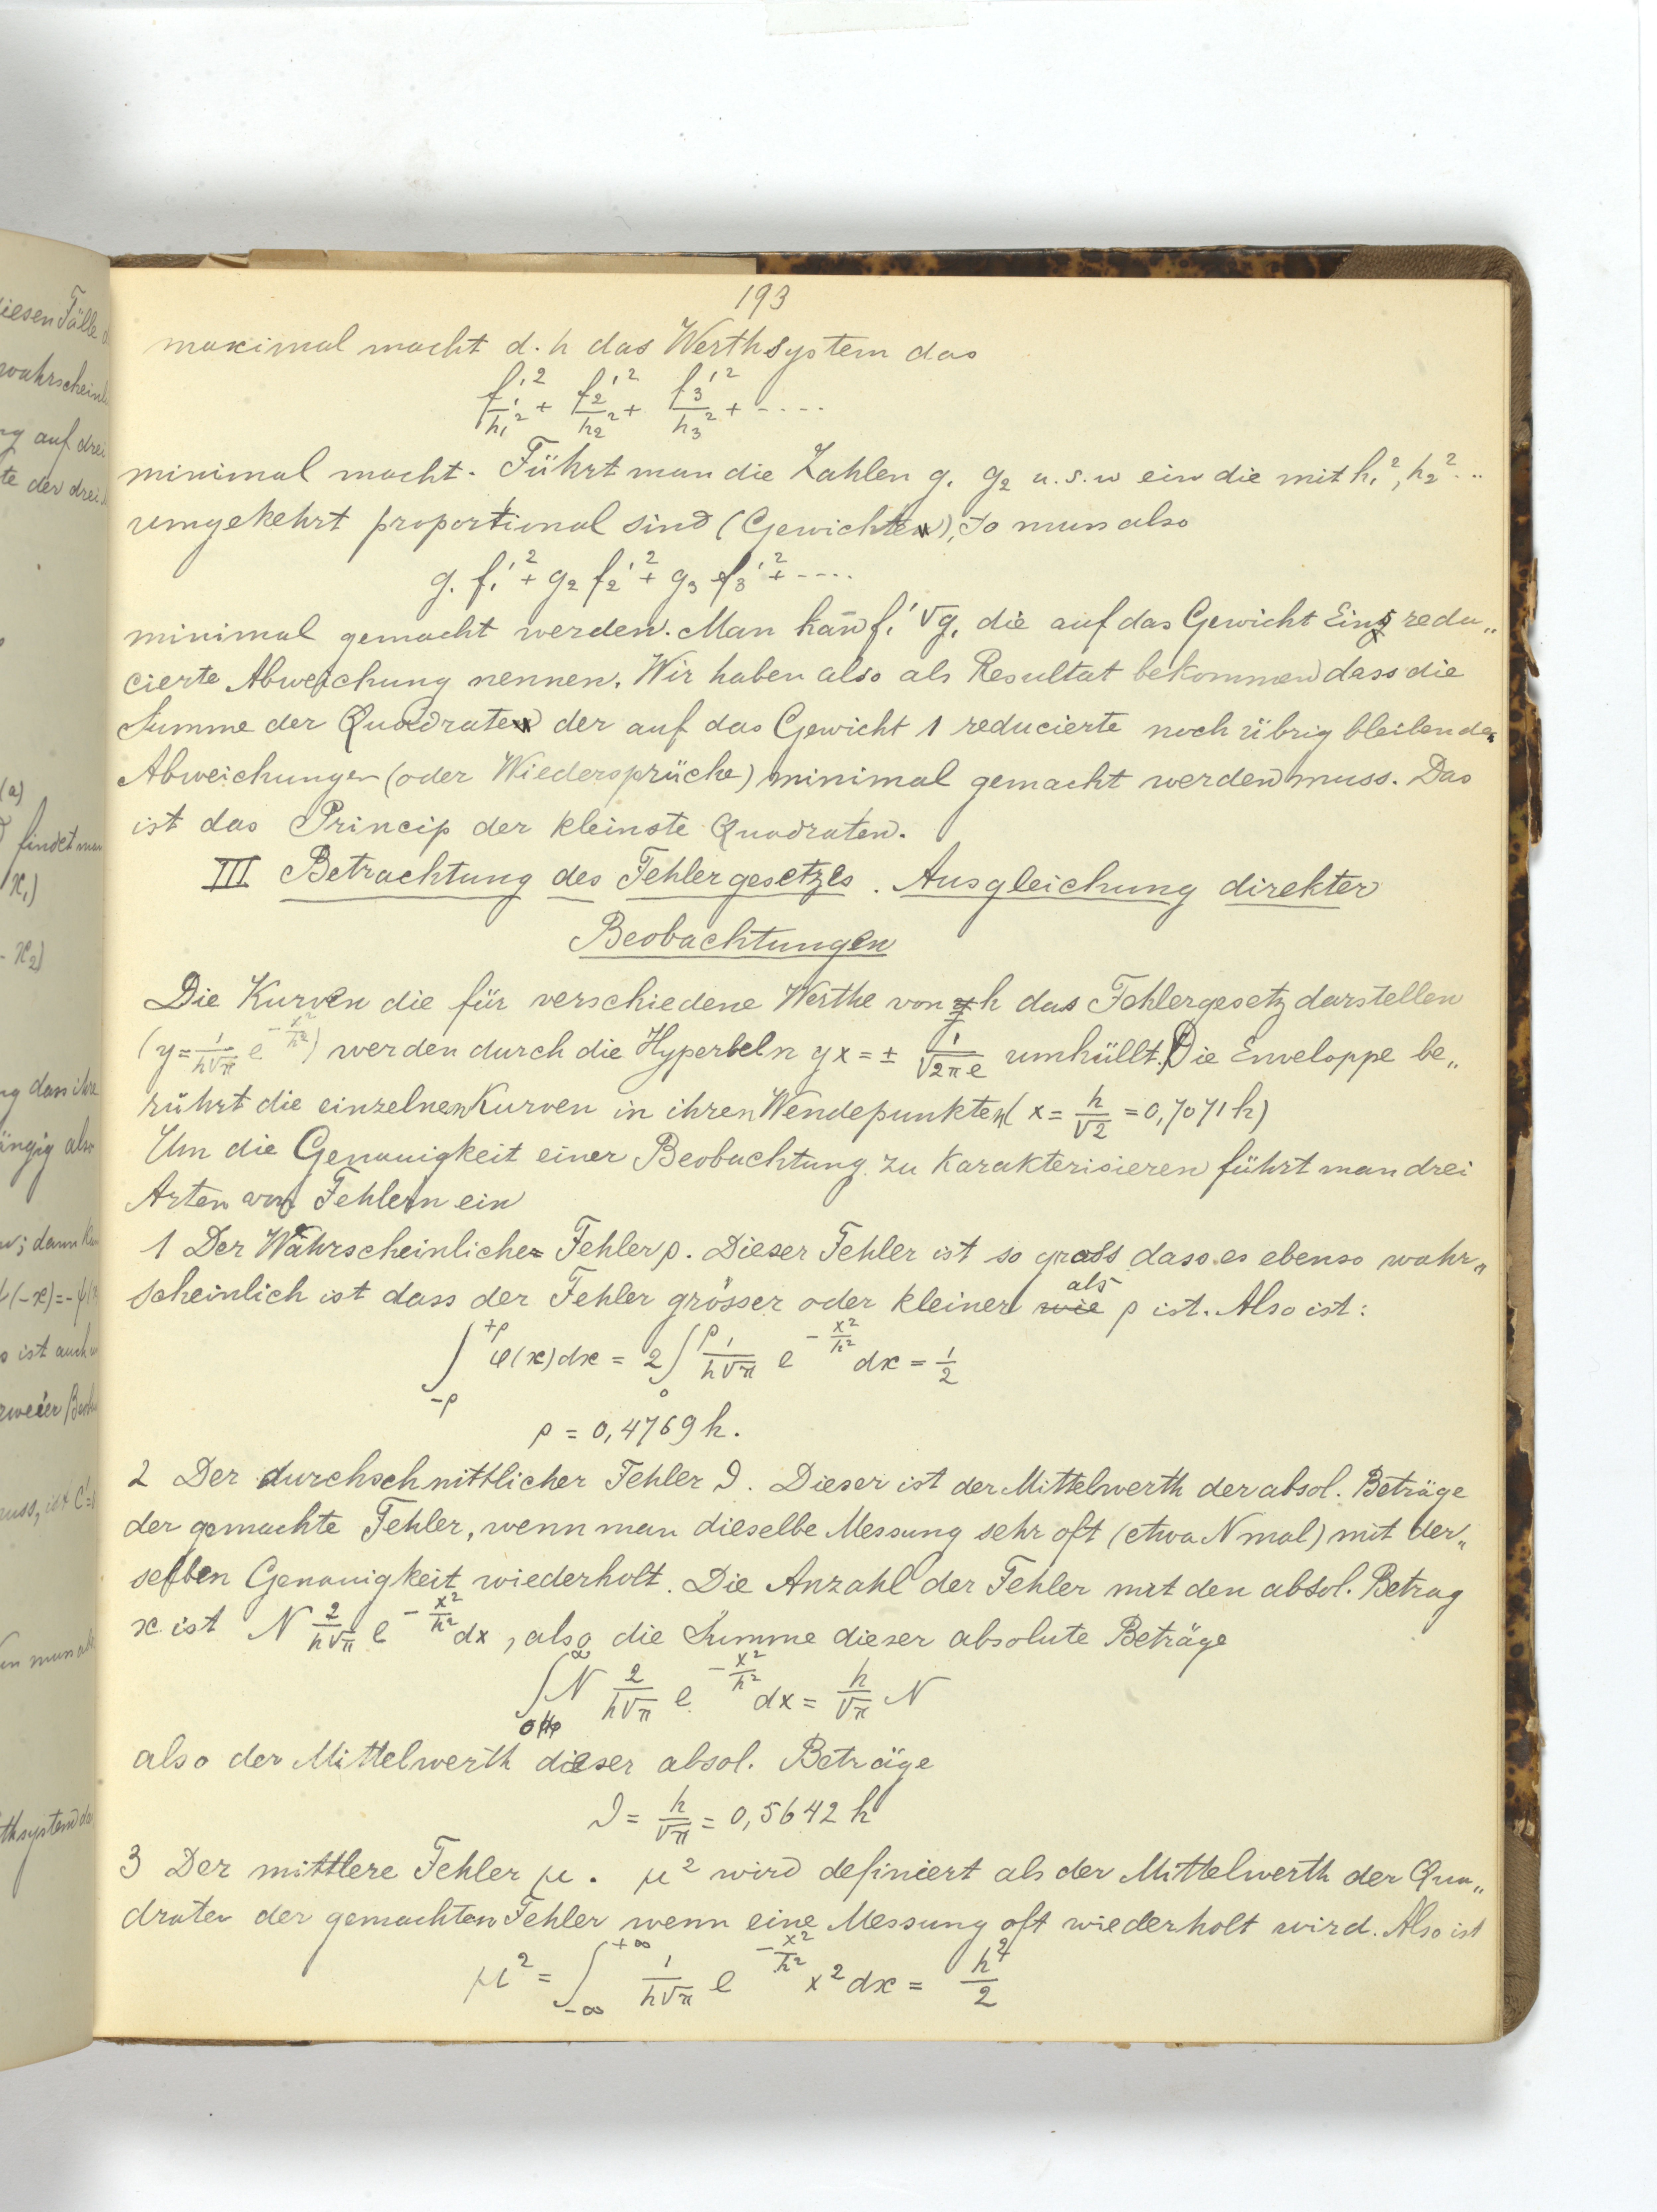 193
maximal macht d. h das Werthsystem das
f₁'²/h₁² + f₂'²/h₂² + f₃'²/h₃² + ----
minimal macht. Führt man die Zahlen g₁ g₂ u.s.w ein die mit h₁², h₂² ...
umgekehrt proportional sind (Gewichte), so muss also
g₁ f₁'² + g₂ f₂'² + g₃ f₃'² + ----
minimal gemacht werden. Man kan̄ f₁' √g₁ die auf das Gewicht Eins redu„
cierte Abweichung nennen. Wir haben also als Resultat bekommen dass die
Summe der Quadrate der auf das Gewicht 1 reducierte noch übrig bleibenden
Abweichungen (oder Wiedersprüche) minimal gemacht werden muss. Das
ist das Princip der kleinste Quadraten.
III Betrachtung des Fehlergesetzes. Ausgleichung direkter
Beobachtungen
Die Kurven die für verschiedene Werthe von h das Fehlergesetz darstellen
(y = 1/(h√π) e^(-x²/h²)) werden durch die Hyperbeln yx = ± 1/√(2πe) umhüllt. Die Enveloppe be„
rührt die einzelnen Kurven in ihren Wendepunkten (x = h/√2 = 0,7071 h)
Um die Genauigkeit einer Beobachtung zu Karakterisieren führt man drei
Arten von Fehlern ein
1 Der Wahrscheinliche Fehler ρ. Dieser Fehler ist so gross dass es ebenso wahr„
scheinlich ist dass der Fehler grösser oder kleiner wie als ρ ist. Also ist:
∫_{-ρ}^{+ρ} φ(x)dx = 2∫_0^ρ 1/(h√π) e^(-x²/h²) dx = 1/2
ρ = 0,4769 h.
2 Der durchschnittlicher Fehler ϑ. Dieser ist der Mittelwerth der absol. Beträge
der gemachte Fehler, wenn man dieselbe Messung sehr oft (etwa N mal) mit der„
selben Genauigkeit wiederholt. Die Anzahl der Fehler mit den absol. Betrag
x ist N 2/(h√π) e^(-x²/h²) dx, also die Summe dieser absolute Beträge
∫_0^∞ N 2/(h√π) e^(-x²/h²) dx = h/√π N
also der Mittelwerth dieser absol. Beträge
ϑ = h/√π = 0,5642 h
3 Der mittlere Fehler μ. μ² wird definiert als der Mittelwerth der Qua„
draten der gemachten Fehler wenn eine Messung oft wiederholt wird. Also ist
μ² = ∫_{-∞}^{+∞} 1/(h√π) e^(-x²/h²) x² dx = h²/2